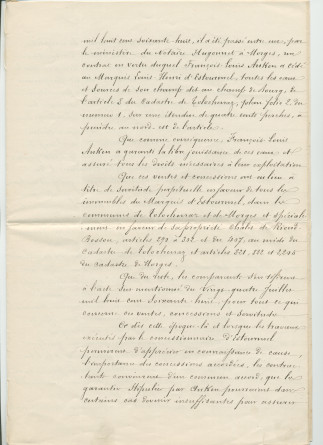 mil huit cent soixante huit, il a été passé entre eux, par
le ministère du Notaire Hugonnet à Morges, un
contrat en vertu duquel François Louis Anken a cédé
au Marquis Louis Henri d'Estourmel, toutes les eaux
et sources de son champ dit au champ de bourg, de
l'article 3 du Cadastre de Tolochenaz, plan folio 2 du
numéro 1. Sur une étendue de quatre cent perches, à
prendre au nord-est de l'article.
Que comme conséquence, François Louis
Anken a garanti la libre jouissance de ces eaux et
assuré tous les droits nécessaires à leur exploitation
Que ces ventes et concessions ont eu lieu à
titre de servitude perpétuelle en faveur de tous les
immeubles du Marquis d'Estourmel, dans les
communes de Tolochenaz et de Morges et spéciale
ment en faveur de sa propriété
articles 292 à 312 et du 457, au midi du
cadastre de Tolochenaz et articles 221, 222 et 2245
du Cadastre de Morges.
Que du reste, les comparants s'en réfèrent
à l'acte sus mentionné du vingt quatre Juillet
mil huit cent soixante huit pour tout ce qui
concerne ces ventes, concessions et servitude
Ce dès cette époque-là et lorsque les travaux
exécutés par le concessionnaire d'Estourmel
permirent d'apprécier en connaissance de cause,
l'importance des concessions accordées, les contrac
tants convinrent d'un commun accord, que la
garantie stipulée par Anken pourrait dans
certains cas devenir insuffisantes pour assurer